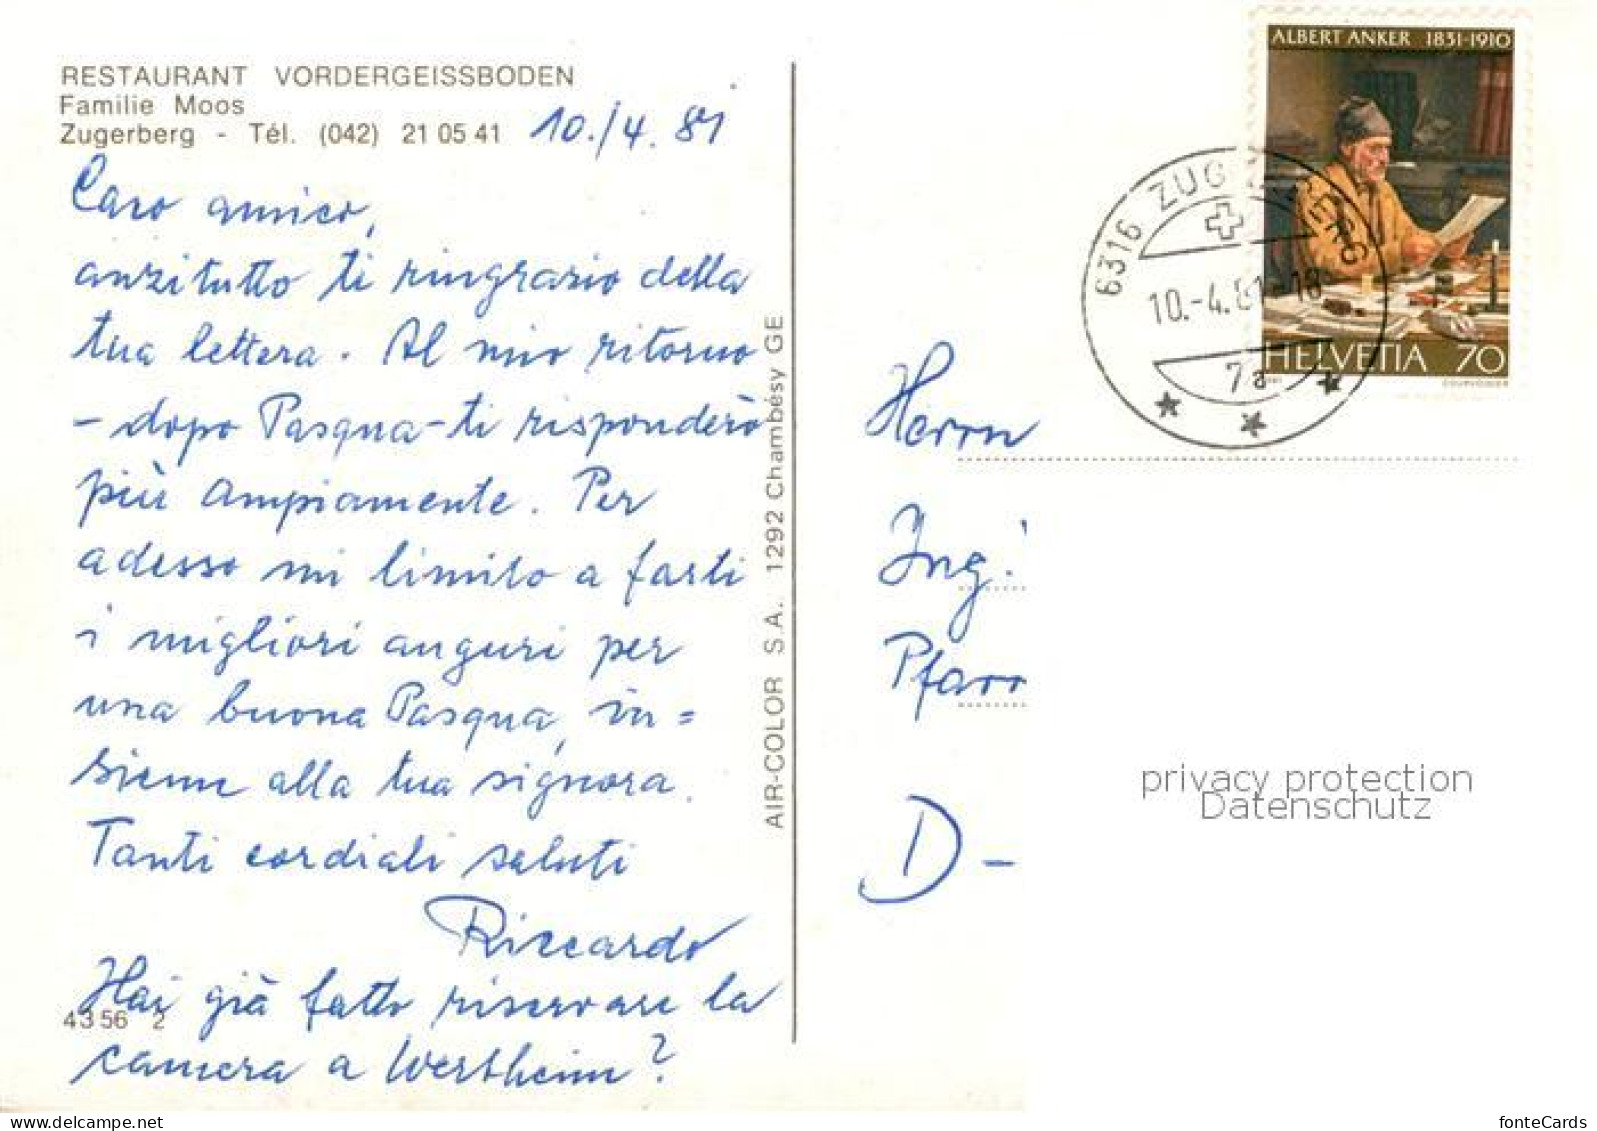 RESTAURANT VORDERGEISSBODEN
Familie Moos
Zugerberg - Tél. (042) 21 05 41
10./4. 81
Caro amico,
anzitutto ti ringrazio della
tua lettera. Al mio ritorno
- dopo Pasqua - ti risponderò
più ampiamente. Per
adesso mi limito a farti
i migliori auguri per
una buona Pasqua, in=
sieme alla tua signora.
Tanti cordiali saluti
Riccardo
Hai già fatto riservare la
camera a Wertheim?
4356 2
AIR-COLOR S.A. 1292 Chambésy GE
ALBERT ANKER 1831-1910
HELVETIA 70
COURVOISIER
6316 ZUGERBERG
10.-4.81-18
7a
Herrn
Ing.
Pfarr
D -
privacy protection
Datenschutz
fonteCards
delcampe.net